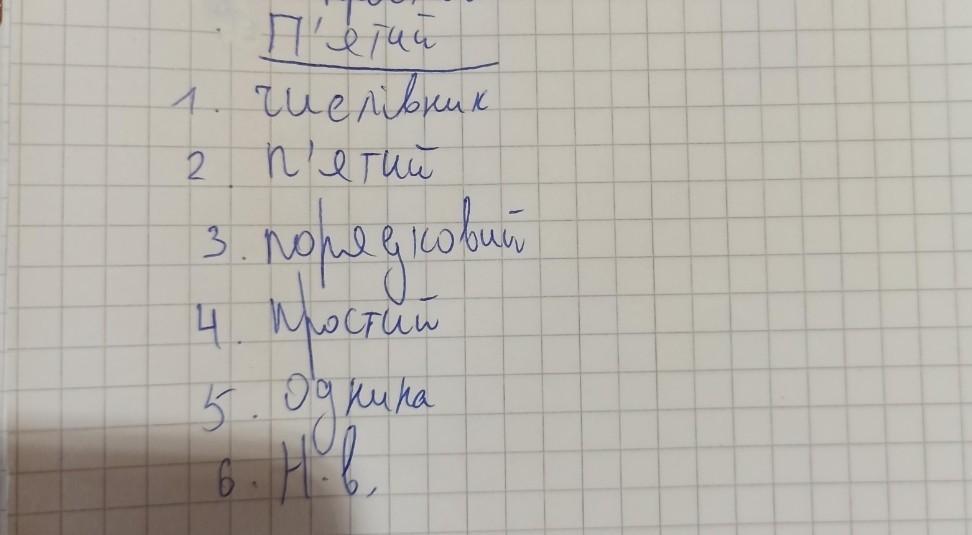 П'ятий
1. числівник
2. п'ятий
3. порядковий
4. простий
5. Однина
6. Н.в.